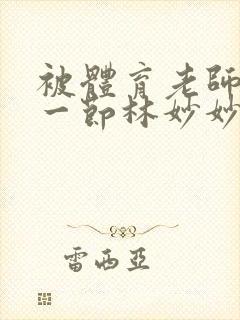 被體育老師
一節林妙妙
雷西亞